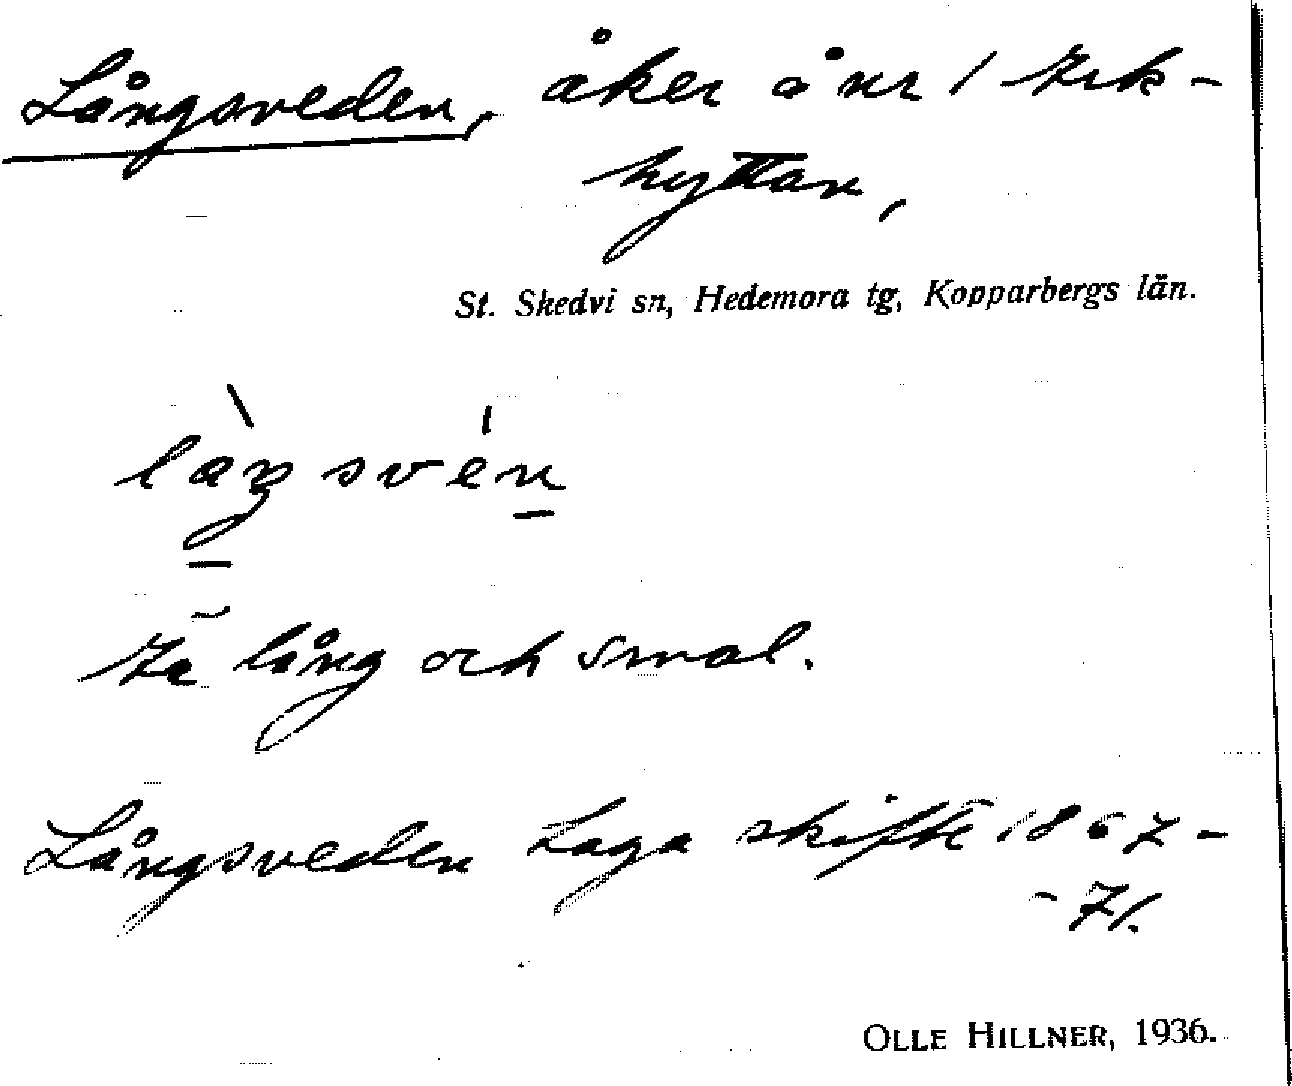 Långsveden, åker å nr 1 Ark-
hyttan,
St. Skedvi sn, Hedemora tg, Kopparbergs län.
Är lång och smal.
Långsveden Laga skifte 1867-
-71.
OLLE HILLNER, 1936.